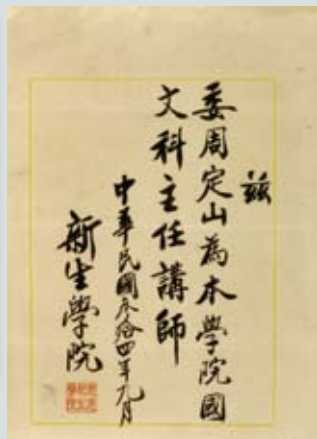 茲
委周定山為本學院國
文科主任講師
中華民國叁拾四年九月
新生學院